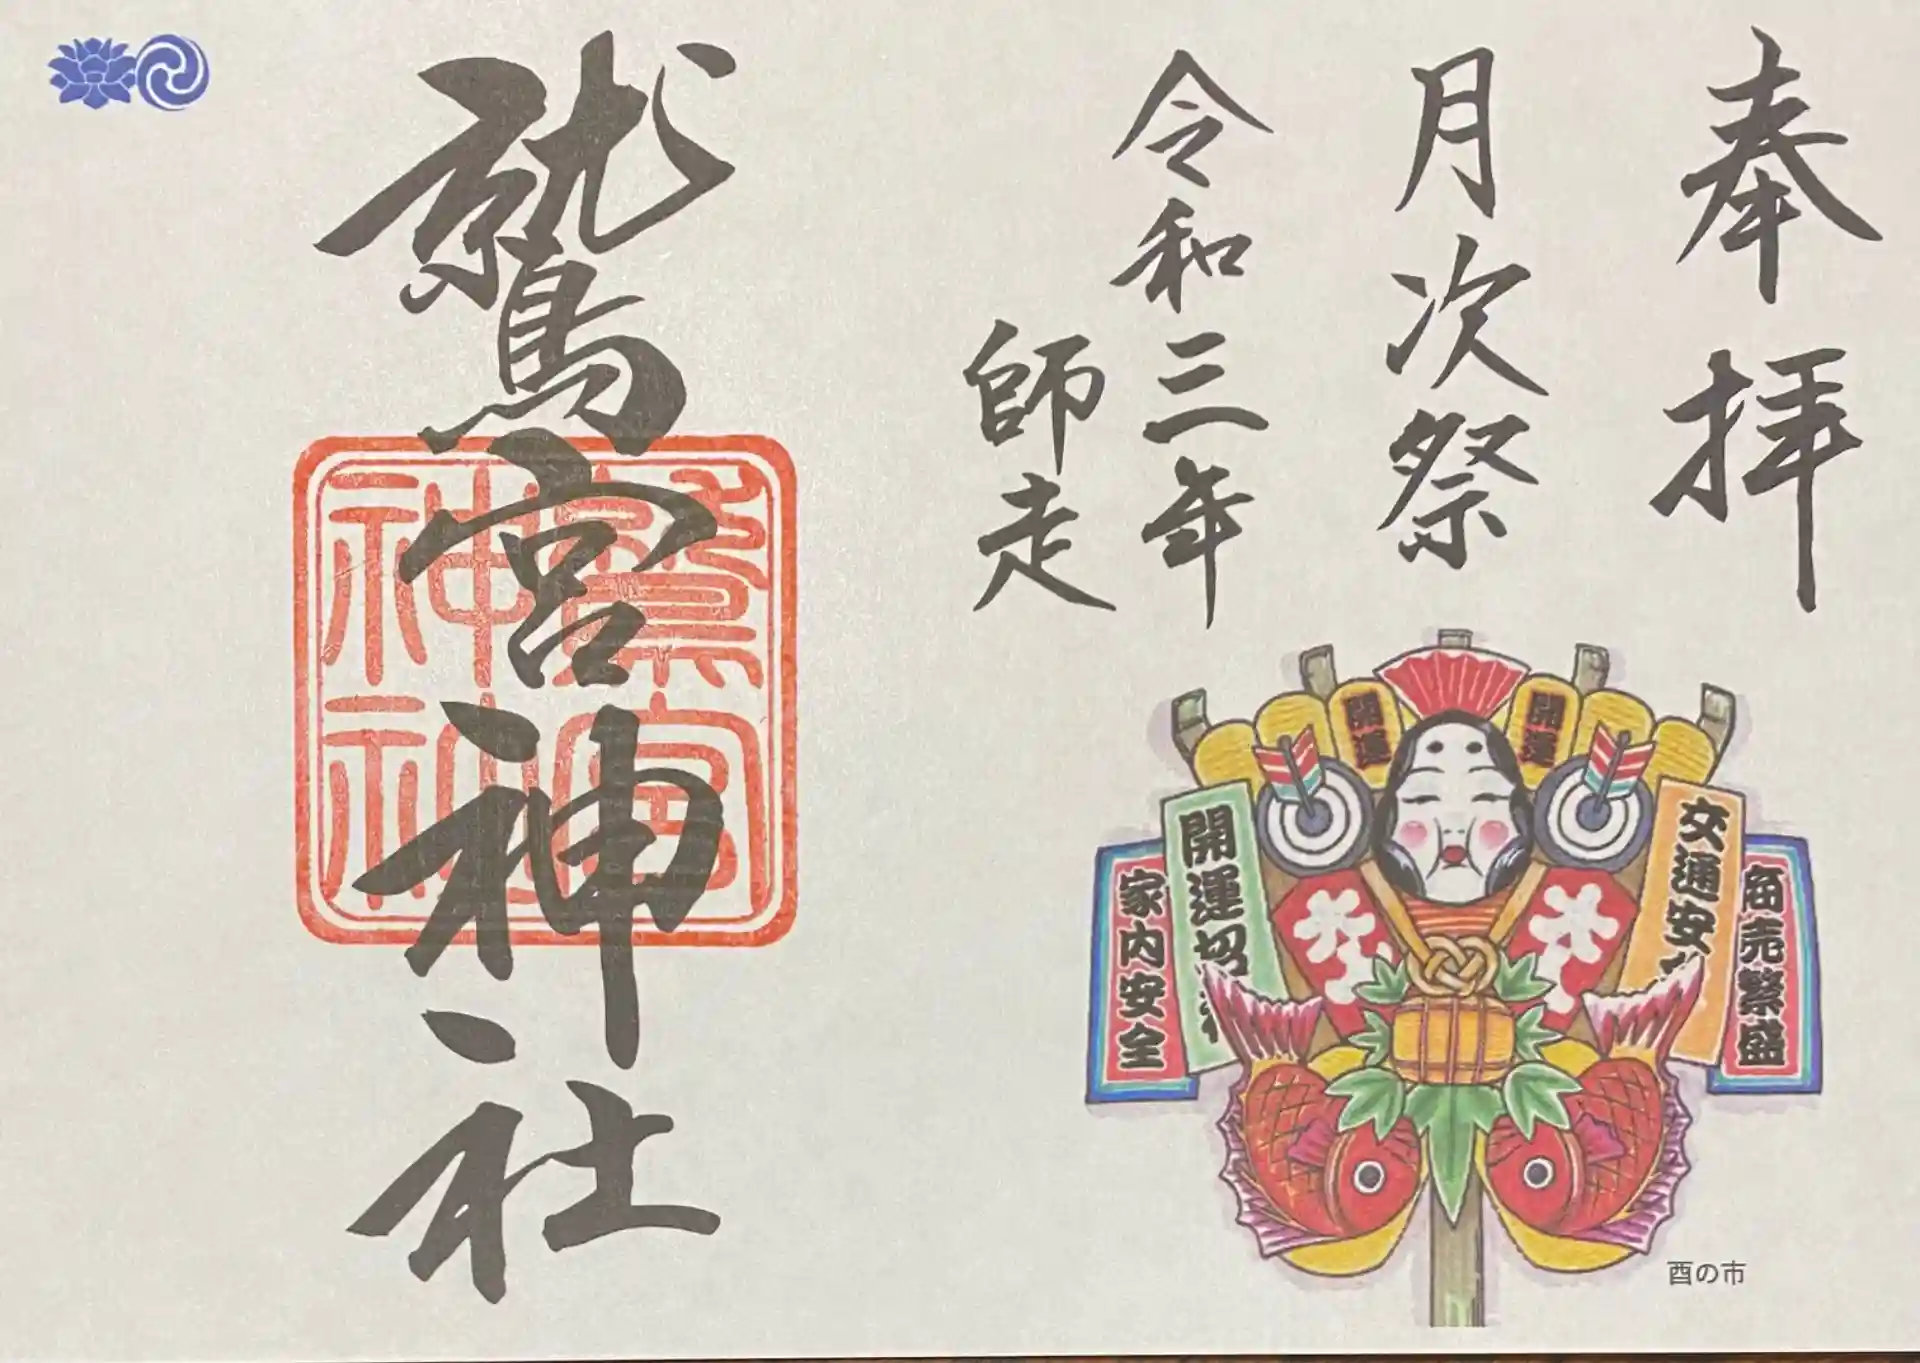 奉拝
月次祭
令和三年
師走
鷲宮神社
鷲宮
神社
開運
開運
商売繁盛
交通安
開運切
家内安全
酉の市